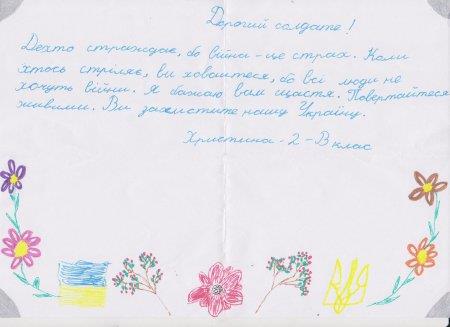 Дорогий солдате!
Дехто страждає, бо війна - це страх. Коли
хтось стріляє, ви ховаєтеся, бо всі люди не
хочуть війни. Я бажаю вам щастя. Повертайтеся
живими. Ви захистите нашу Україну.
Христина - 2-В клас